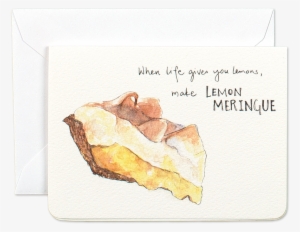 When life gives you lemons,
make LEMON
MERINGUE